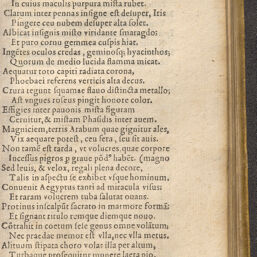 In cuius maculis purpura mista rubet.
Clarum inter pennas insigne est desuper, Iris
Pingere ceu nubem desuper alta solet.
Albicat insignis misto viridante smaragdo:
Et puro cornu gemmea cuspis hiat.
Ingẽtes oculos credas, geminosq; hyacinthos;
Quorum de medio lucida flamma micat.
Aequatur toto capiti radiata corona,
Phoebaei referens verticis alta decus.
Crura tegunt squamae flauo distincta metallo;
Ast vngues roseus pingit honore color.
Effigies inter pauonis mista figuram
Cernitur, & mistam Phasidis inter auem.
Magniciem, terris Arabum quae gignitur ales,
Vix aequare potest, ceu fera, seu sit auis.
Non tamẽ est tarda, vt volucres quae corpore
Incessus pigros p graue põdꝰ habẽt. (magno
Sed leuis, & velox, regali plena decore,
Talis in aspectu se exhibet vsque hominum,
Conuenit Aegyptus tanti ad miracula visus:
Et raram volucrem tuba salutat ouans.
Protinus insculpũt sacrato in marmore formã:
Et signant titulo remque diemque nouo.
Cõtrahit in coetum sese genus omne volãtum,
Nec praedae memor est vlla, nec vlla metus.
Alituum stipata choro volat illa per altum,
Turbaque prosequitur munere laeta pio.